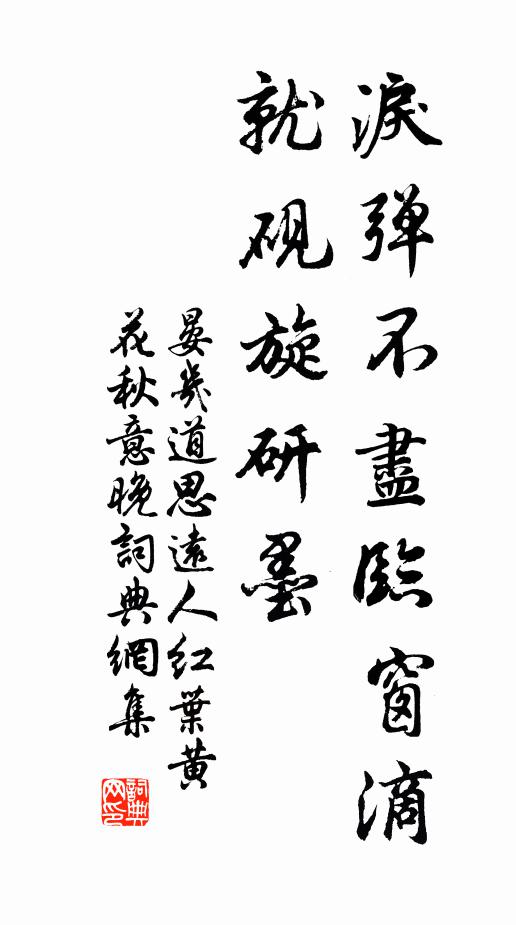 淚彈不盡臨窗滴
就硯旋研墨
晏幾道思遠人紅葉黃
花秋意晚詞典網集
詞典
网印